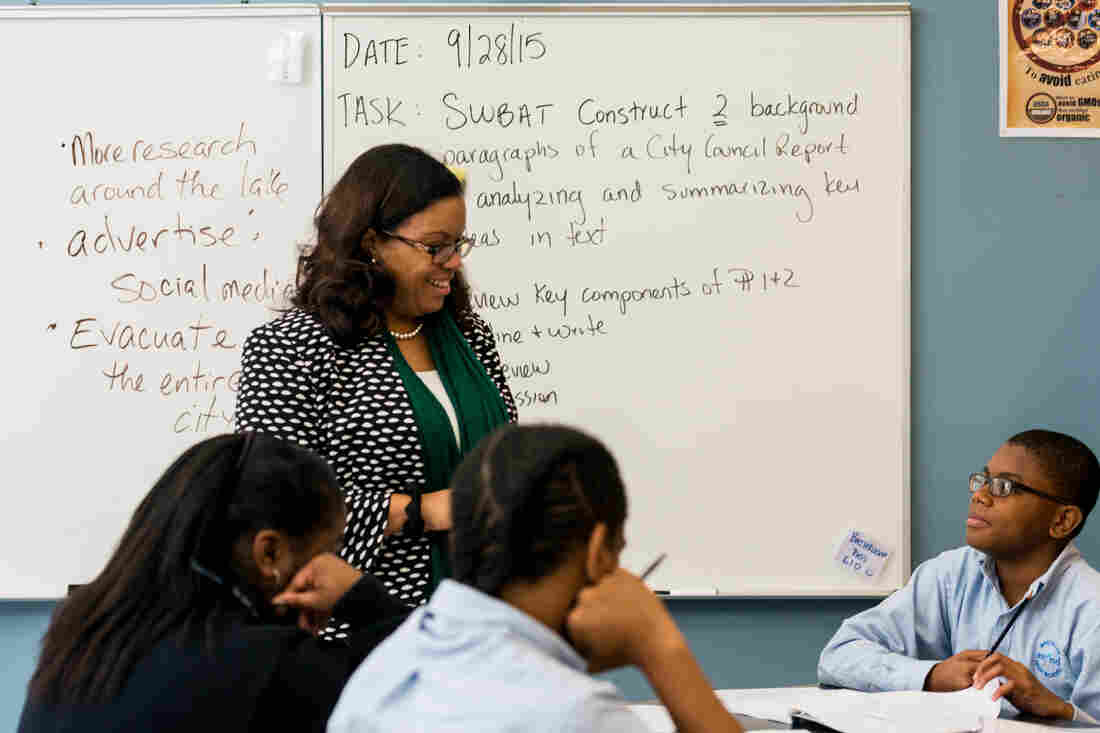 • More research
around the lake
• advertise :
social media
• Evacuate
the entire
city
DATE: 9/28/15
TASK: SWBAT Construct 2 background
paragraphs of a City Council Report
analyzing and summarizing key
in text
Key components of # 1+2
+ write
To avoid
USDA
ORGANIC
avoid GMOs
organic